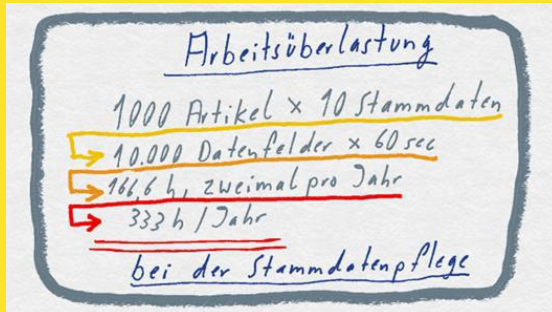 Arbeitsüberlastung
1000 Artikel × 10 Stammdaten
10.000 Datenfelder × 60 sec
166,6 h, zweimal pro Jahr
333 h / Jahr
bei der Stammdatenpflege